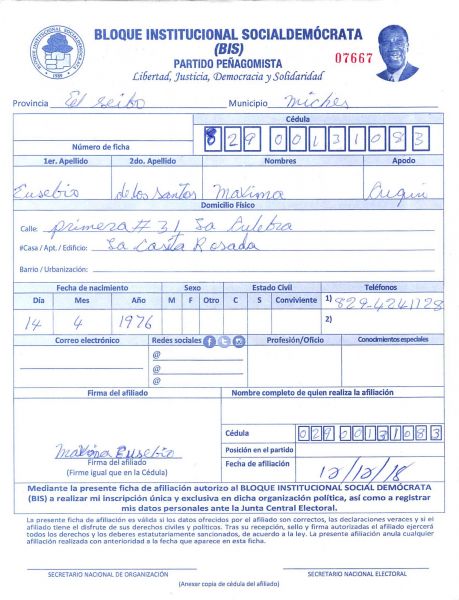 BLOQUE INSTITUCIONAL SOCIALDEMÓCRATA
(BIS)
PARTIDO PEÑAGOMISTA
Libertad, Justicia, Democracia y Solidaridad
07667
Provincia El seibo Municipio miches
Cédula
Número de ficha 029 0013108 3
1er. Apellido 2do. Apellido Nombres Apodo
Eusebio de los santos Maxima
Domicilio Físico
Calle: primera # 31 La Culebra
#Casa / Apt. / Edificio: La Casita Rosada
Barrio / Urbanización:
Fecha de nacimiento Sexo Estado Civil Teléfonos
Día Mes Año M F Otro C S Conviviente 1) 829-4241128
14 4 1976 2)
Correo electrónico Redes sociales Profesión/Oficio Conocimientos especiales
@
@
@
Firma del afiliado Nombre completo de quien realiza la afiliación
Cédula 029 0013108 3
Maxima Eusebio
Posición en el partido
Firma del afiliado
(Firme igual que en la Cédula)
Fecha de afiliación 12/12/18
Mediante la presente ficha de afiliación autorizo al BLOQUE INSTITUCIONAL SOCIAL DEMÓCRATA
(BIS) a realizar mi inscripción única y exclusiva en dicha organización política, así como a registrar
mis datos personales ante la Junta Central Electoral.
La presente ficha de afiliación es válida si los datos ofrecidos por el afiliado son correctos, las declaraciones veraces y si el
afiliado tiene el disfrute de sus derechos civiles y políticos. Tras su recepción, sello y firma autorizadas el afiliado ejercerá
todos los derechos y los deberes estatutariamente sancionados, de acuerdo a la ley. La presente afiliación anula cualquier
afiliación realizada con anterioridad a la fecha que aparece en esta ficha.
SECRETARIO NACIONAL DE ORGANIZACIÓN SECRETARIO NACIONAL ELECTORAL
(Anexar copia de cédula del afiliado)